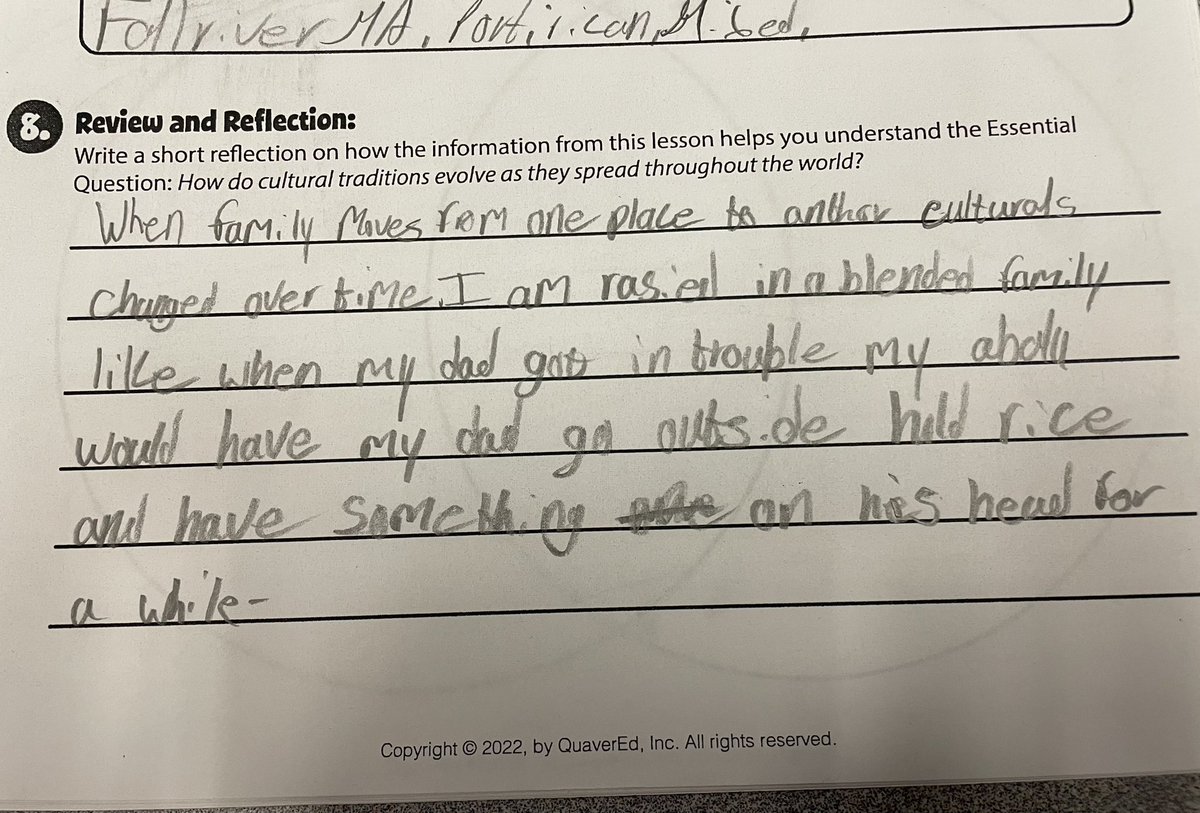 Fallriver MA, Portirican, Mixed,
8. Review and Reflection:
Write a short reflection on how the information from this lesson helps you understand the Essential
Question: How do cultural traditions evolve as they spread throughout the world?
When family Moves from one place to anthor culturals
changed over time. I am rasied in a blended family
like when my dad got in trouble my
would have my dad go outside hold rice
and have something on his head for
a while-
Copyright © 2022, by QuaverEd, Inc. All rights reserved.